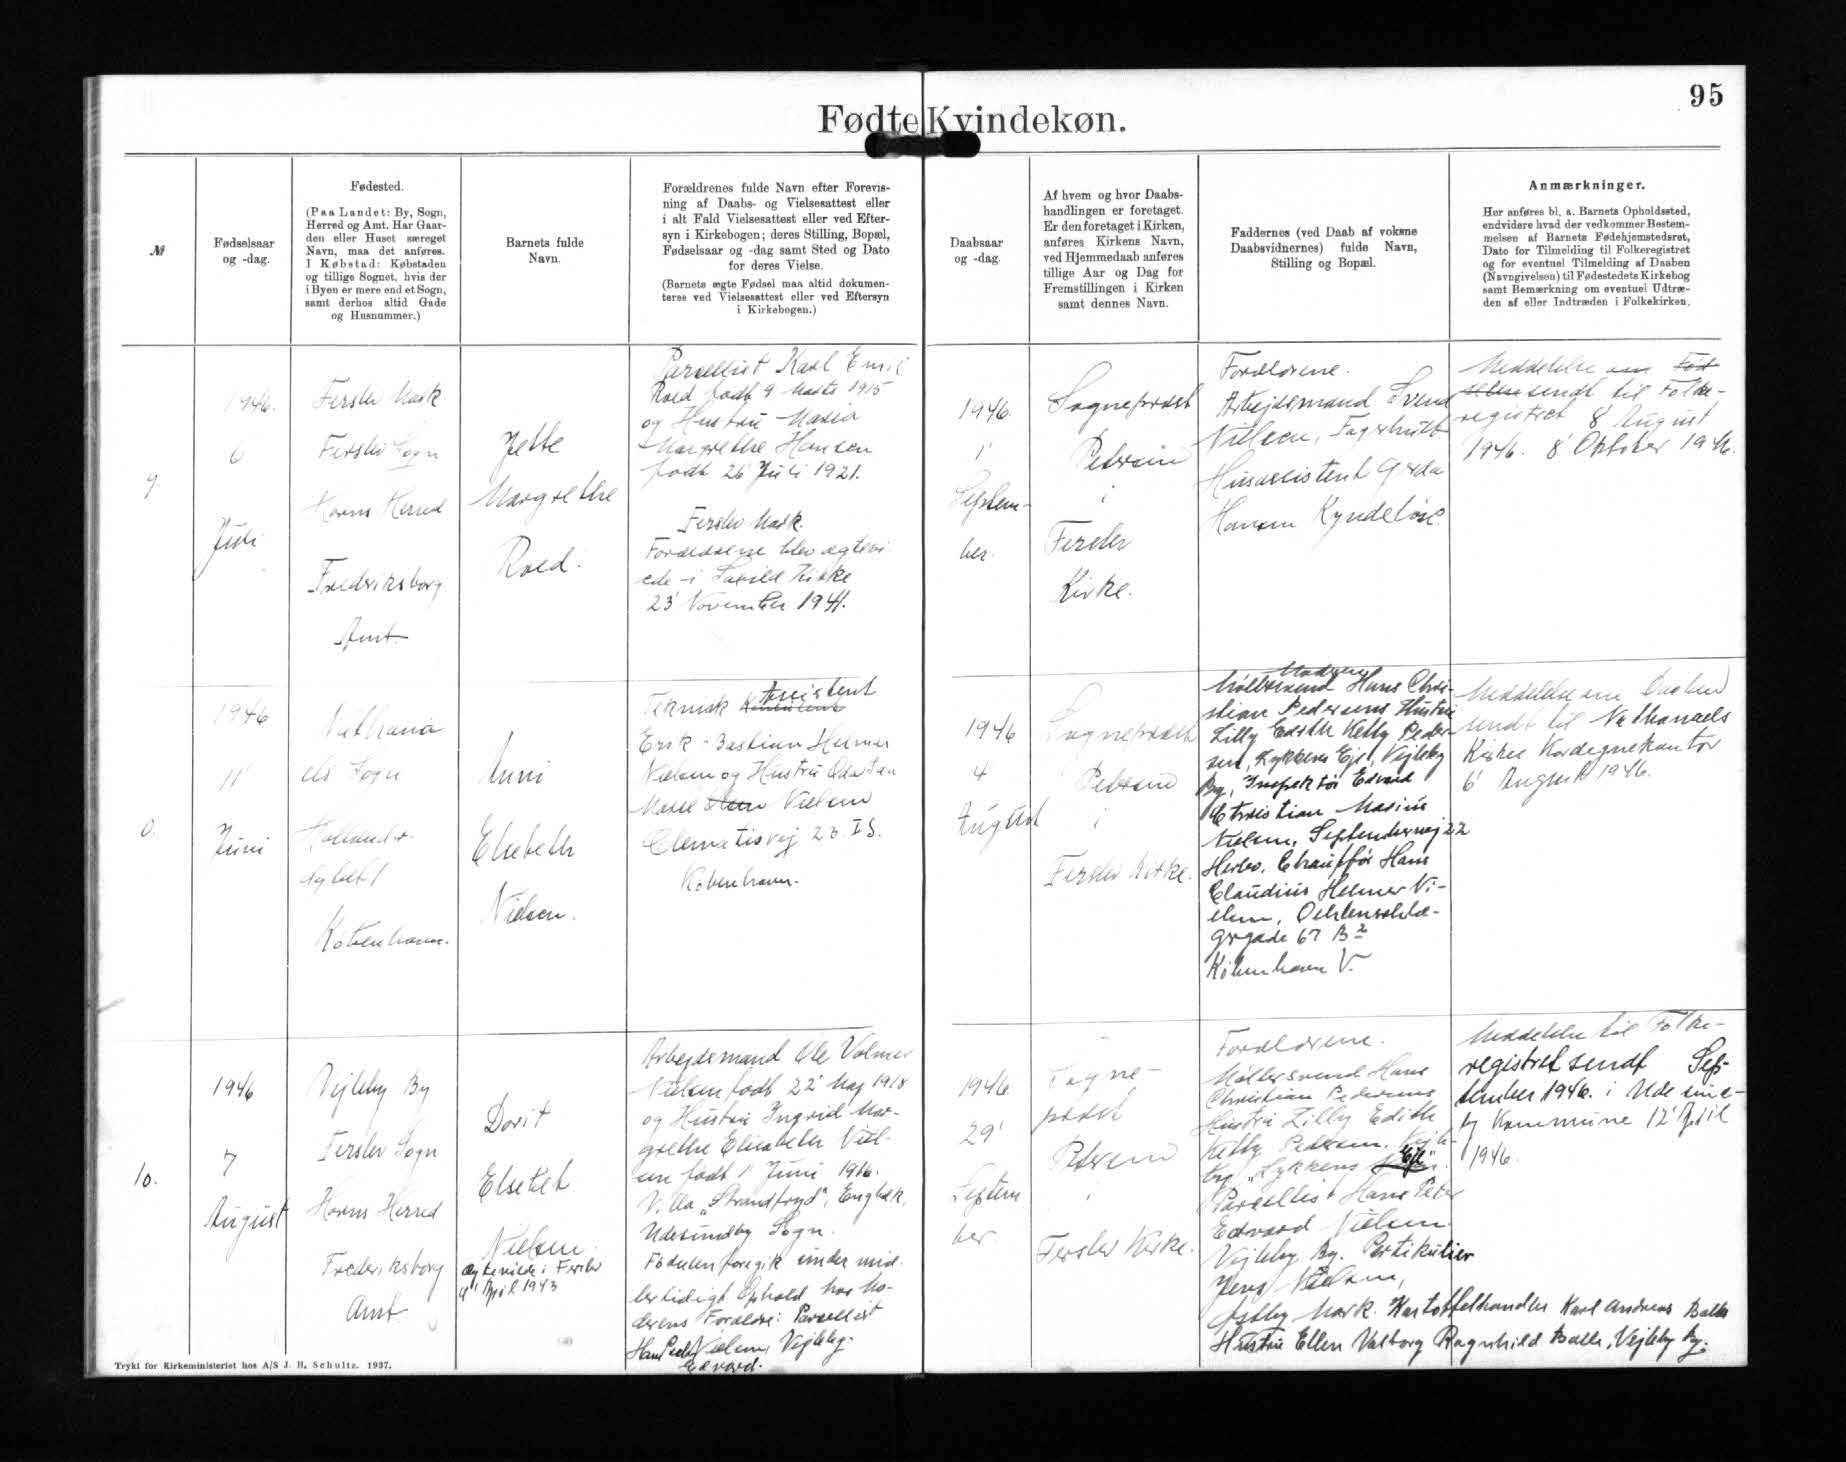 95
Fødte Kvindekøn.
№
Fødselsaar
og -dag.
Fødested.
(Paa Landet: By, Sogn,
Herred og Amt. Har Gaar-
den eller Huset særeget
Navn, maa det anføres.
I Købstad: Købstaden
og tillige Sognet, hvis der
i Byen er mere end et Sogn,
samt derhos altid Gade
og Husnummer.)
Barnets fulde
Navn.
Forældrenes fulde Navn efter Forevis-
ning af Daabs- og Vielsesattest eller
i alt Fald Vielsesattest eller ved Efter-
syn i Kirkebogen; deres Stilling, Bopæl,
Fødselsaar og -dag samt Sted og Dato
for deres Vielse.
(Barnets ægte Fødsel maa altid dokumen-
teres ved Vielsesattest eller ved Eftersyn
i Kirkebogen.)
Daabsaar
og -dag.
Af hvem og hvor Daabs-
handlingen er foretaget.
Er den foretaget i Kirken,
anføres Kirkens Navn,
ved Hjemmedaab anføres
tillige Aar og Dag for
Fremstillingen i Kirken
samt dennes Navn.
Faddernes (ved Daab af voksne
Daabsvidnernes) fulde Navn,
Stilling og Bopæl.
Anmærkninger.
Her anføres bl. a. Barnets Opholdssted,
endvidere hvad der vedkommer Bestem-
melsen af Barnets Fødehjemstedsret,
Dato for Tilmelding til Folkeregistret
og for eventuel Tilmelding af Daaben
(Navngivelsen) til Fødestedets Kirkebog
samt Bemærkning om eventuel Udtræ-
den af eller Indtræden i Folkekirken.
9.
1946.
6
Juli
Ferslev Mark
Ferslev Sogn
Horns Herred
Frederiksborg
Amt.
Jytte
Margrethe
Roed.
Parcellist Karl Emil
Roed født 9 Marts 1915
og Hustru Maria
Margrethe Hansen
født 26 Juli 1921.
Ferslev Mark.
Forældrene blev ægtevi
ede i Kirke
23' November 1941.
1946.
1'
Septem-
ber.
Sognepræst
Petersen
i
Ferslev
Kirke.
Forældrene.
Arbejdsmand Svend
Nielsen,
Husassistent Gerda
Hansen Kyndeløse.
Meddelelse om Fød
selen sendt til Folke-
registret 8' August
1946. 8' Oktober 1946.
0.
1946
11'
Juni
Nathana
els Sogn
København.
Anni
Elsebeth
Nielsen.
Teknisk Assistent
Erik Bastian Helmer
Nielsen og Hustru
Nielsen
Clematisvej 23 I S.
København.
1946
4'
August
Sognepræst
Petersen
i
Ferslev Kirke.
Moderen
Møllersvend Hans Chri-
stian Pedersens Hustru
Lilly Edith Ketty Peder-
sen, Lykkens Eje, Vejleby
By, Inspektør Edvard
Christian Marius
Nielsen, Septembervej 22
Herlev, Chauffør Hans
Claudius Helmer Ni-
elsen, Oehlenschlæ-
gersgade 67 B 2
København V.
Meddelelse om Daaben
sendt til Nathanaels
Kirkes Kordegnekontor
6' August 1946.
10.
1946
7
August
Vejleby By
Ferslev Sogn
Horns Herred
Frederiksborg
Amt
Dorit
Elsebet
Nielsen.
ægteviede i Ferslev
4' April 1943
Arbejdsmand Ole Volmer
Nielsen født 22' Maj 1918
og Hustru Ingrid Mar-
grethe Elisabeth Niel-
sen født 1' Juni 1916.
Villa "Strandfryd", Engbæk,
Udesundby Sogn.
Fødselen foregik under mid-
lertidigt Ophold hos Mo-
derens Forældre: Parcellist
Hans Peder Nielsen, Vejleby.
Edvard.
1946
29'
Septem
ber.
Sogne-
præst
Petersen
i
Ferslev Kirke.
Forældrene.
Møllersvend Hans
Christian Pedersens
Hustru Lilly Edith
Ketty Pedersen, Vejle-
by "Lykkens Eje".
Parcellist Hans Peter
Edvard Nielsen.
Vejleby By. Partikulier
Jens Nielsen,
Mark. Kartoffelhandler Karl Andreas Balle
Hustru Ellen Valborg Ragnhild Balle, Vejleby By.
Meddelelse til Folke-
registret sendt Sep-
tember 1946. i Udesund-
by Kommune 12' April
1946.
Trykt for Kirkeministeriet hos A/S J. H. Schultz. 1937.